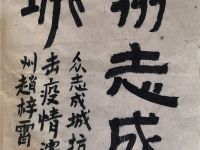 志成
城
众志成城抗
击疫情
州趙梓雷